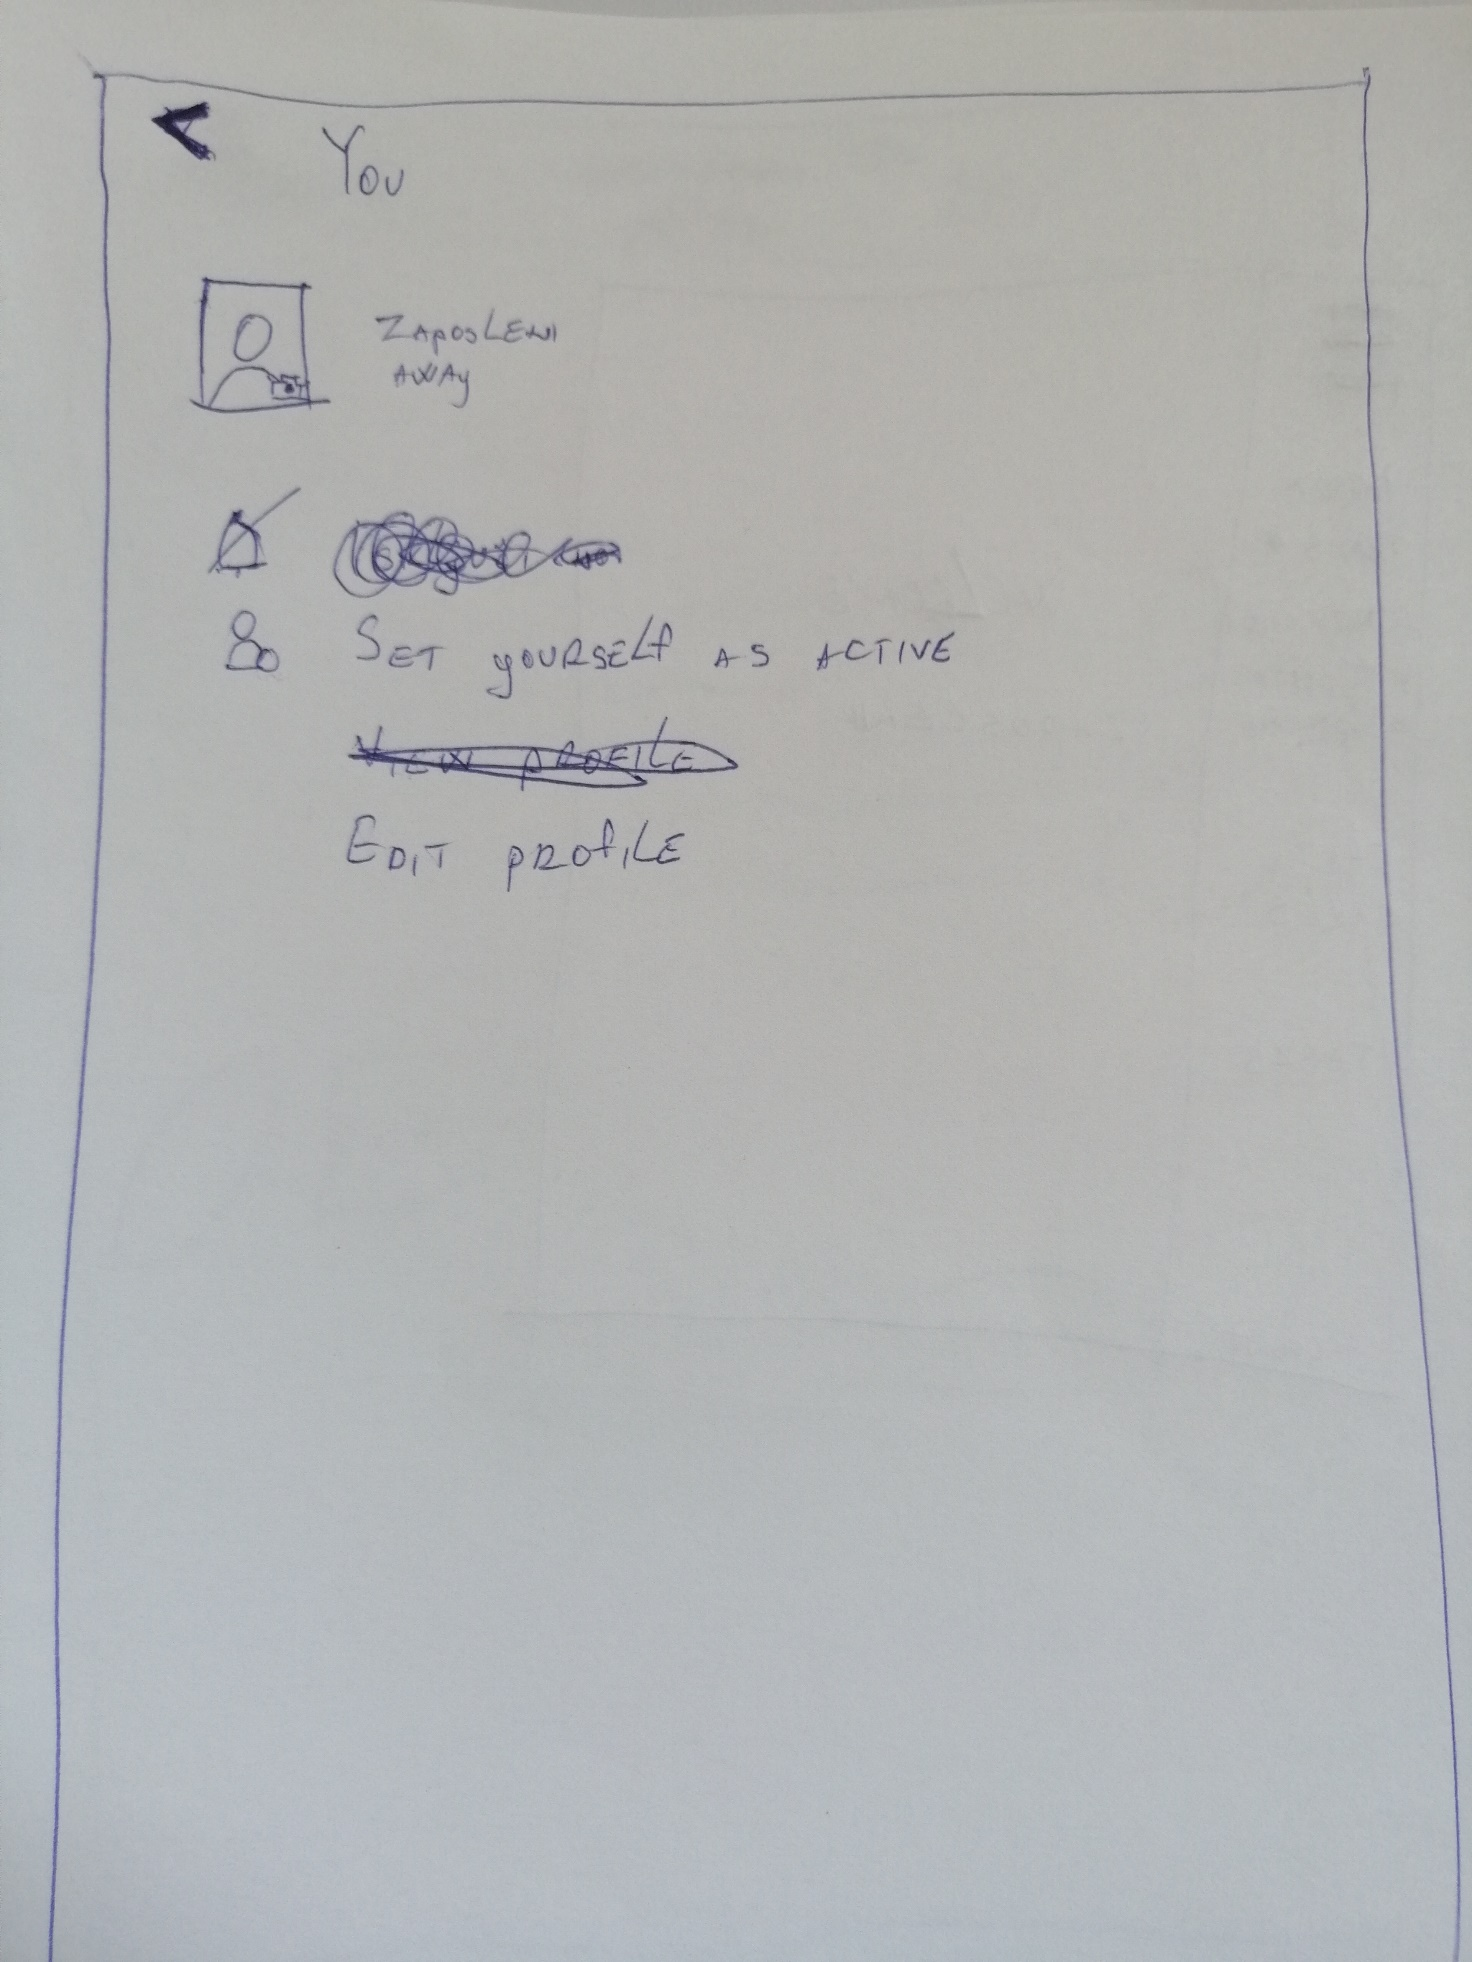 You
ZAPOSLENI
AWAY
SET yOURSELf AS ACTIVE
VIEW PROFILE
EDIT pROfILE